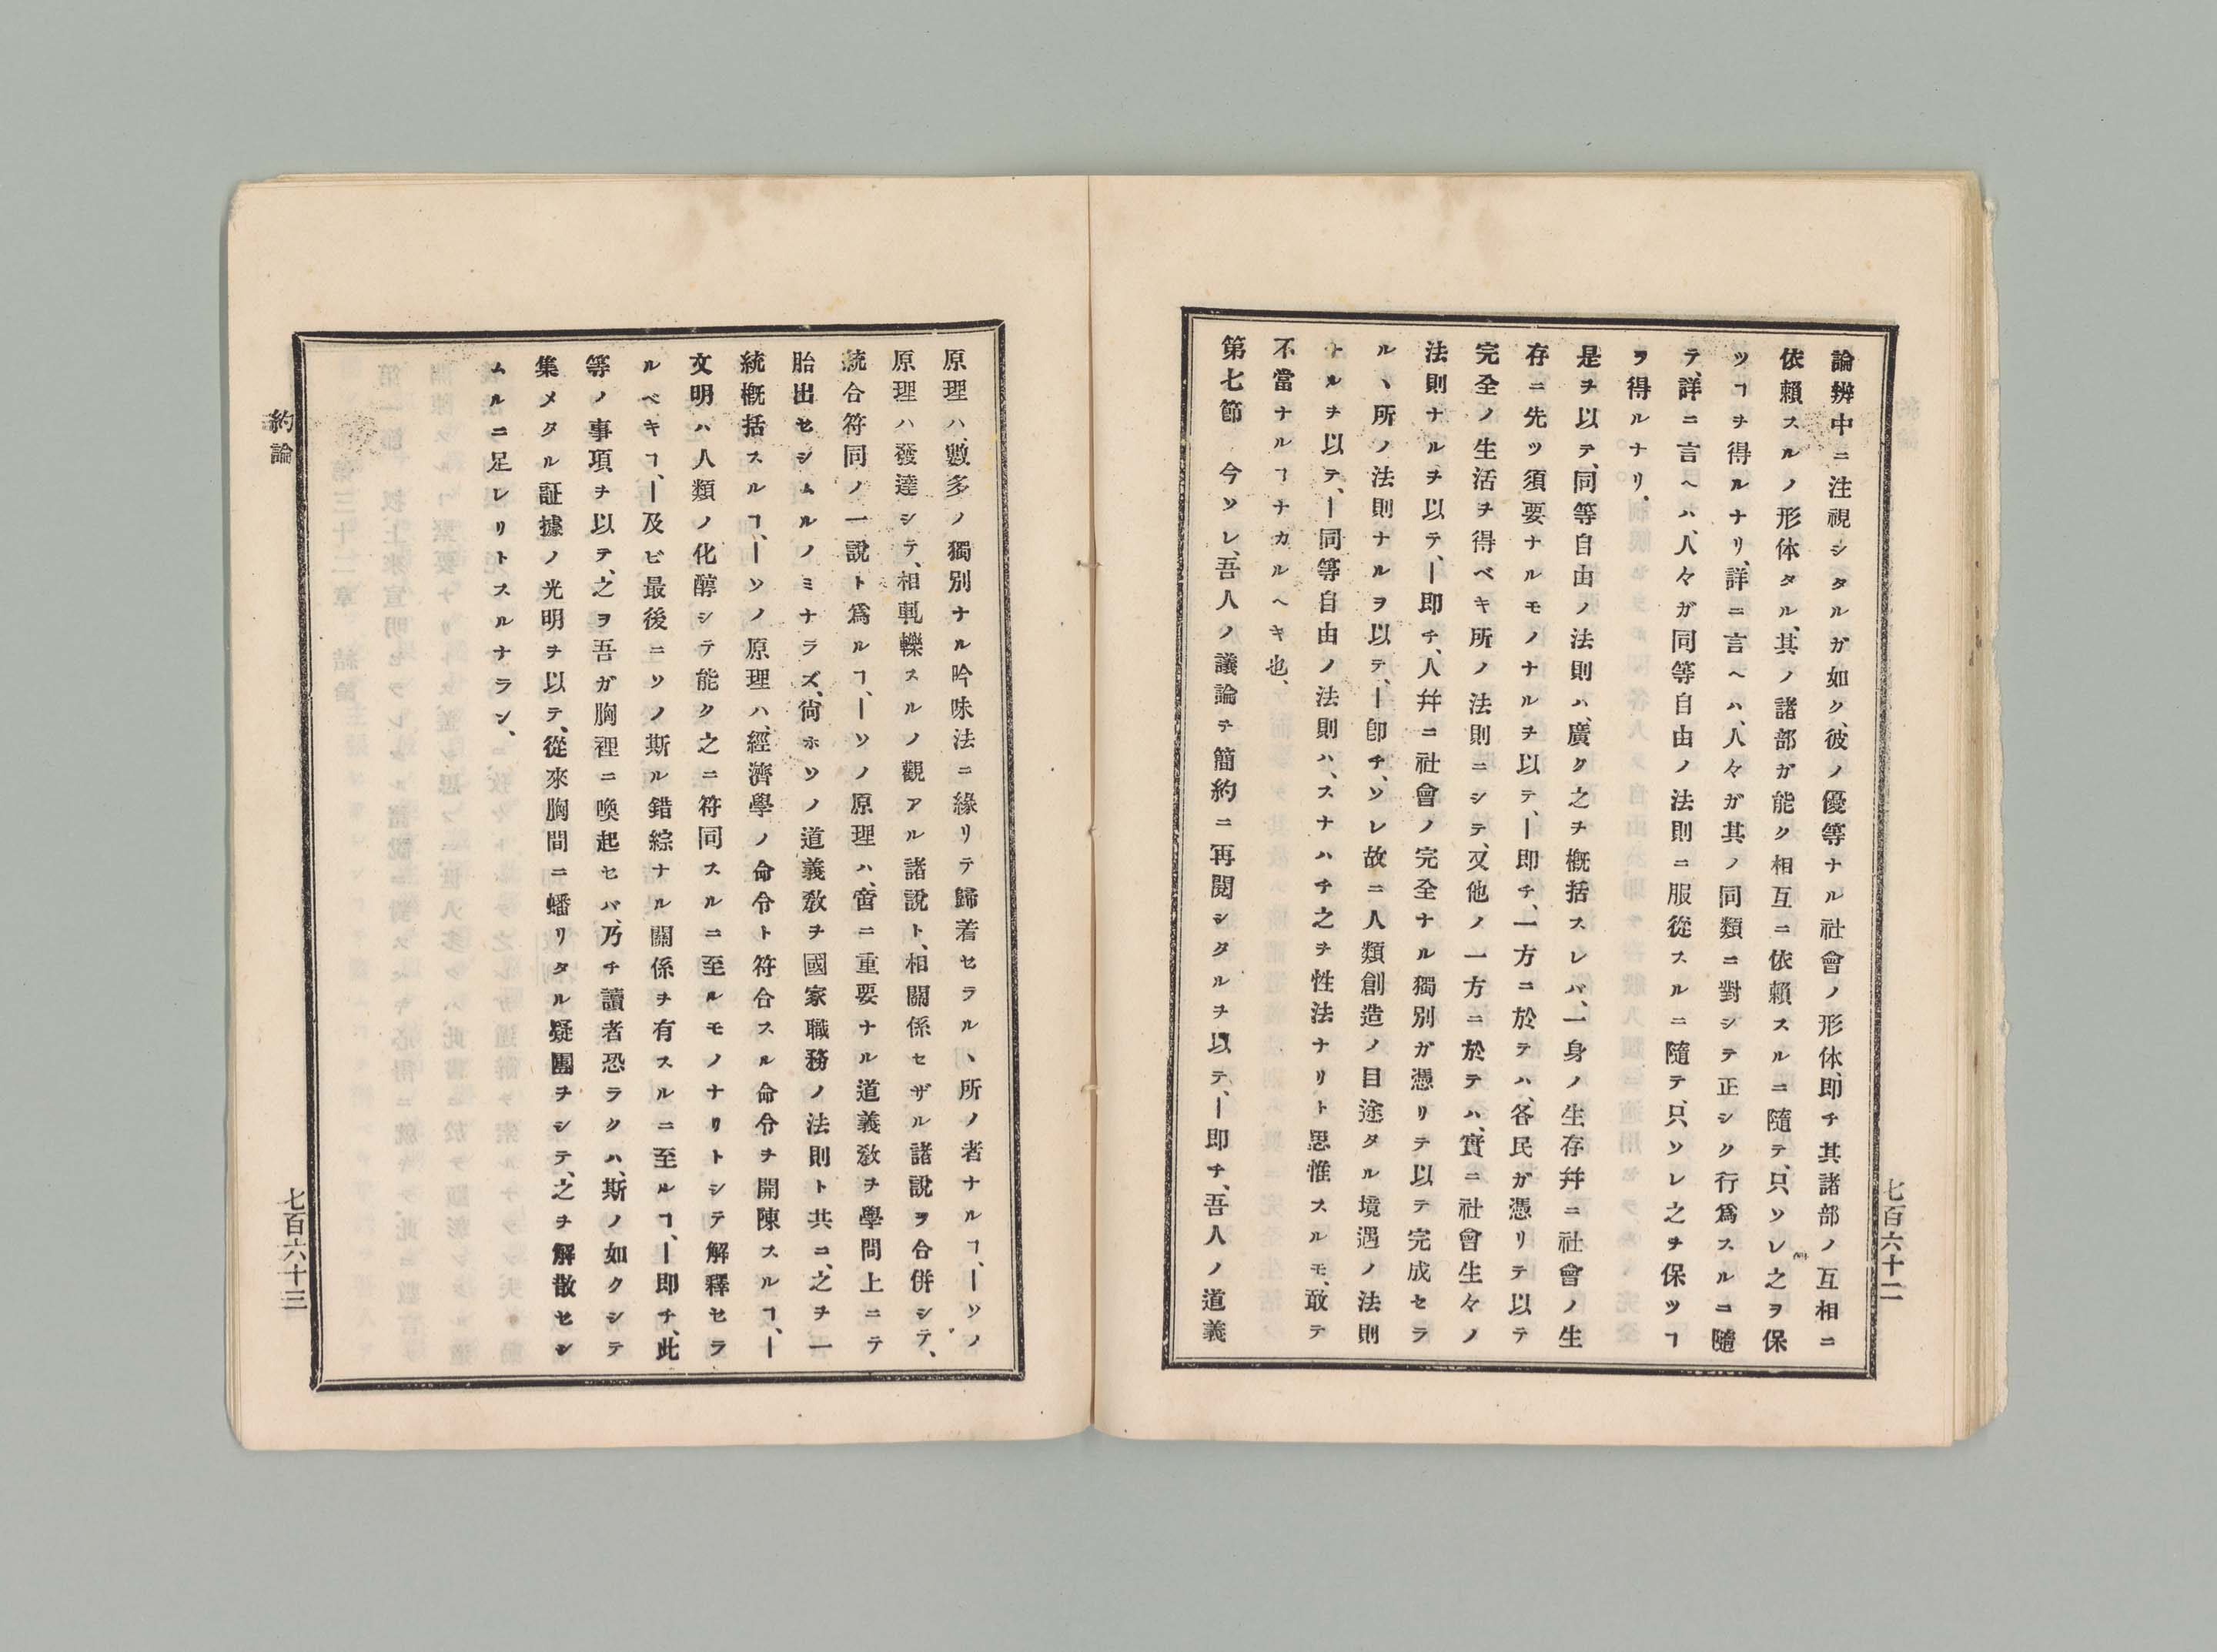 論辨中ニ注視シタルガ如ク、彼ノ優等ナル社會ノ形体、即チ其諸部ノ互相ニ
依賴スルノ形体タル、其ノ諸部ガ能ク相互ニ依賴スルニ隨テ、只ソレ之ヲ保
ツヿヲ得ルナリ、詳ニ言ヘハ、人々ガ其ノ同類ニ對シテ正シク行爲スルニ隨
テ、詳ニ言ヘハ、人々ガ同等自由ノ法則ニ服從スルニ隨テ、只ソレ之ヲ保ツヿ
ヲ得ルナリ、
是ヲ以テ、同等自由ノ法則ハ、廣ク之ヲ概括スレバ、一身ノ生存幷ニ社會ノ生
存ニ先ツ須要ナルモノナルヲ以テ、―即チ、一方ニ於テハ、各民ガ憑リテ以テ
完全ノ生活ヲ得ベキ所ノ法則ニシテ、又他ノ一方ニ於テハ、實ニ社會生々ノ
法則ナルヲ以テ、―即チ、人幷ニ社會ノ完全ナル獨別ガ憑リテ以テ完成セラ
ル、所ノ法則ナルヲ以テ、―卽チ、ソレ故ニ人類創造ノ目途タル境遇ノ法則
ナルヲ以テ、―同等自由ノ法則ハ、スナハチ之ヲ性法ナリト思惟スルモ、敢テ
不當ナルヿナカルヘキ也、
第七節 今ソレ、吾人ノ議論ヲ簡約ニ再閲シタルヲ以テ、―即チ、吾人ノ道義
七百六十二
原理ハ、數多ノ獨別ナル吟味法ニ緣リテ歸着セラル、所ノ者ナルヿ、―ソノ
原理ハ發達シテ、相軋轢スルノ觀アル諸說ト、相關係セザル諸說ヲ合併シテ、
統合符同ノ一說ト爲ルヿ、―ソノ原理ハ、啻ニ重要ナル道義敎ヲ學問上ニテ
胎出セシムルノミナラズ、尙ホソノ道義敎ヲ國家職務ノ法則ト共ニ、之ヲ一
統概括スルヿ、―ソノ原理ハ、經濟學ノ命令ト符合スル命令ヲ開陳スルヿ、―
文明ハ人類ノ化醇シテ能ク之ニ符同スルニ至ルモノナリトシテ解釋セラ
ルベキヿ、―及ビ最後ニソノ斯ル錯綜ナル關係ヲ有スルニ至ルヿ、―即チ、此
等ノ事項ヲ以テ、之ヲ吾ガ胸裡ニ喚起セバ、乃チ讀者恐ラクハ、斯ノ如クシテ
集メタル証據ノ光明ヲ以テ、從來胸間ニ蟠リタル疑團ヲシテ、之ヲ解散セシ
ムルニ足レリトスルナラン、
約論
七百六十三